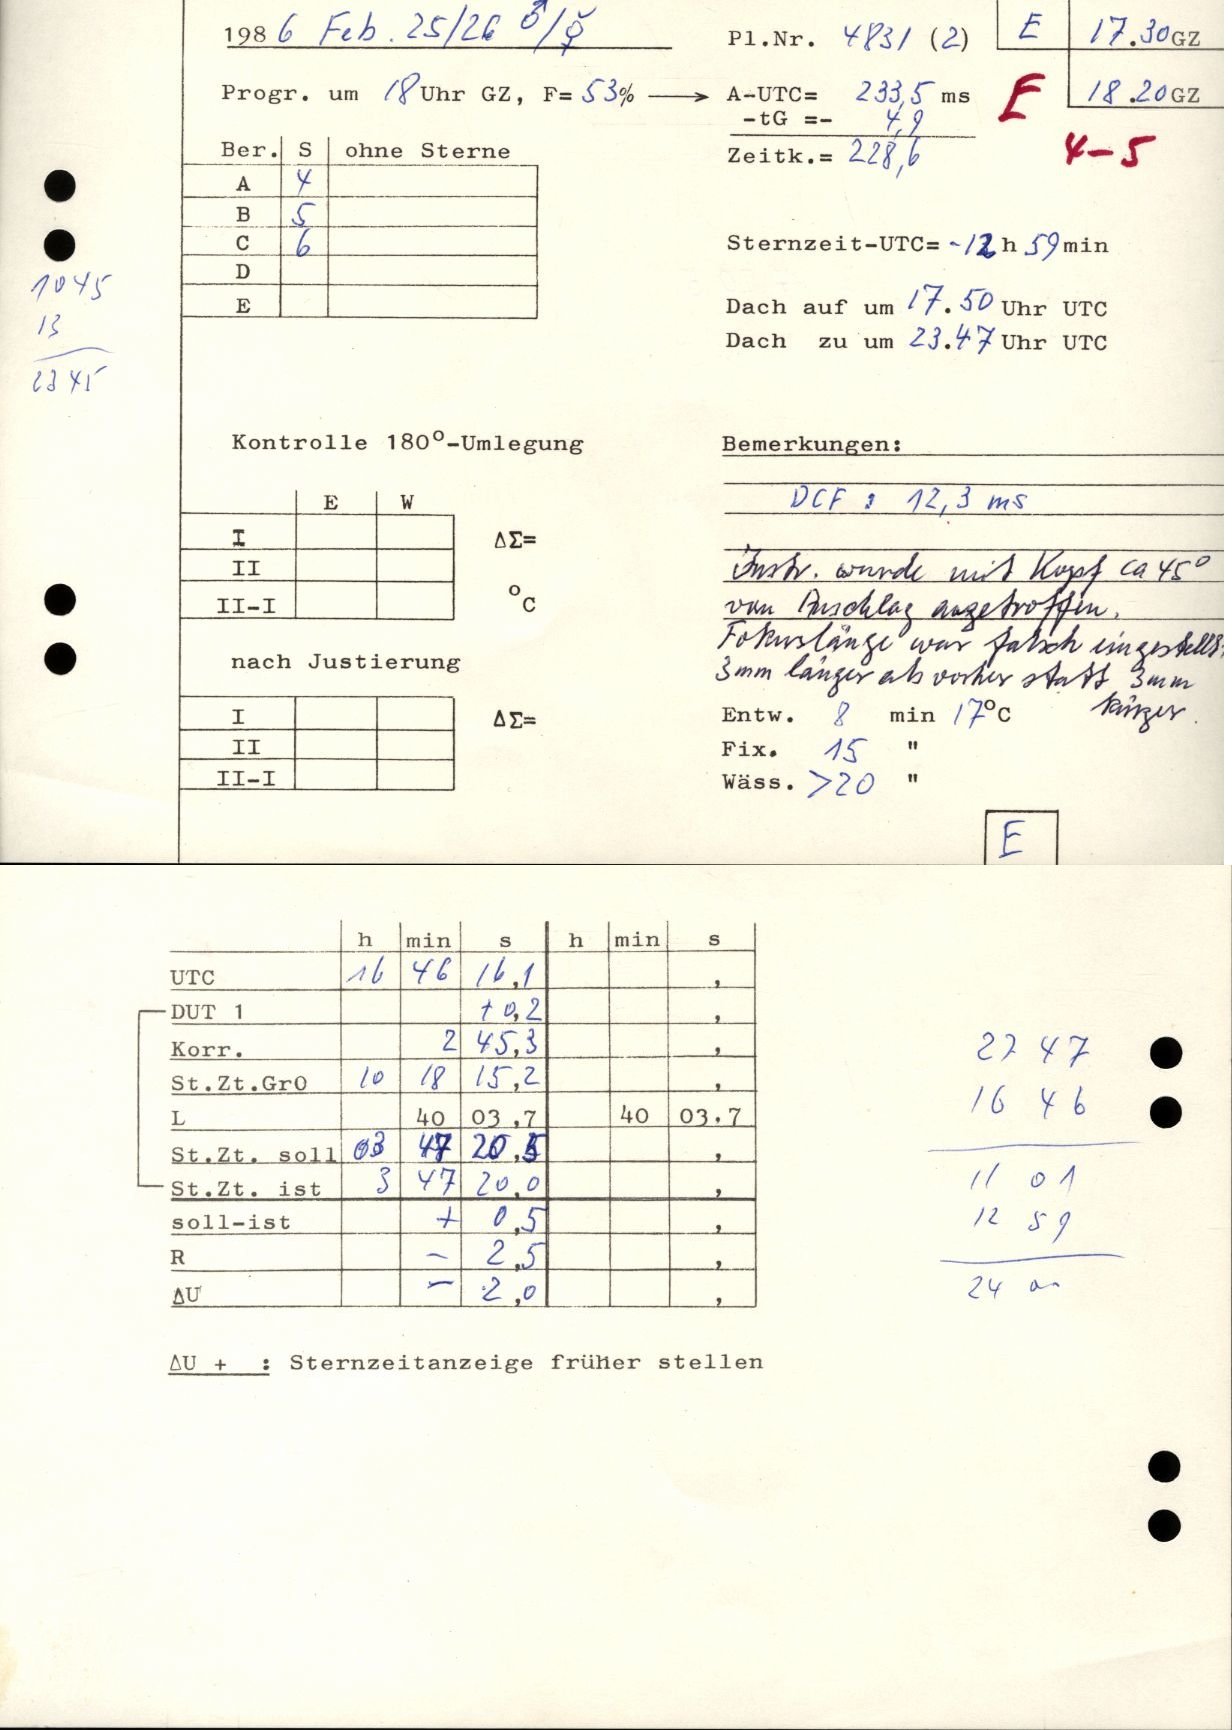 1986 Feb. 25/26 ♂/☿
Pl.Nr. 4831 (2)
E 17.30 GZ
Progr. um 18 Uhr GZ, F= 53% → A-UTC= 233,5 ms
E 18.20 GZ
-tG =- 4,9
Zeitk.= 228,6
4-5
Ber. S ohne Sterne
A 4
B 5
C 6
D
E
1045
13
2345
Sternzeit-UTC= -12 h 59 min
Dach auf um 17.50 Uhr UTC
Dach zu um 23.47 Uhr UTC
Kontrolle 180°-Umlegung
E W
I ΔΣ=
II
II-I °C
nach Justierung
I ΔΣ=
II
II-I
Bemerkungen:
DCF : 12,3 ms
Instr. wurde mit Kopf ca 45°
von Anschlag angetroffen.
Fokuslänge war falsch eingestellt:
3mm länger als vorher statt 3mm
kürzer.
Entw. 8 min 17°C
Fix. 15 "
Wäss. >20 "
E
h min s h min s
UTC 16 46 16,1 ,
DUT 1 +0,2 ,
Korr. 2 45,3 ,
St.Zt.Gr0 10 18 15,2 ,
L 40 03,7 40 03,7
St.Zt. soll 03 47 20,5 ,
St.Zt. ist 3 47 20,0 ,
soll-ist + 0,5 ,
R - 2,5 ,
ΔU - 2,0 ,
ΔU + : Sternzeitanzeige früher stellen
27 47
16 46
11 01
12 59
24 00